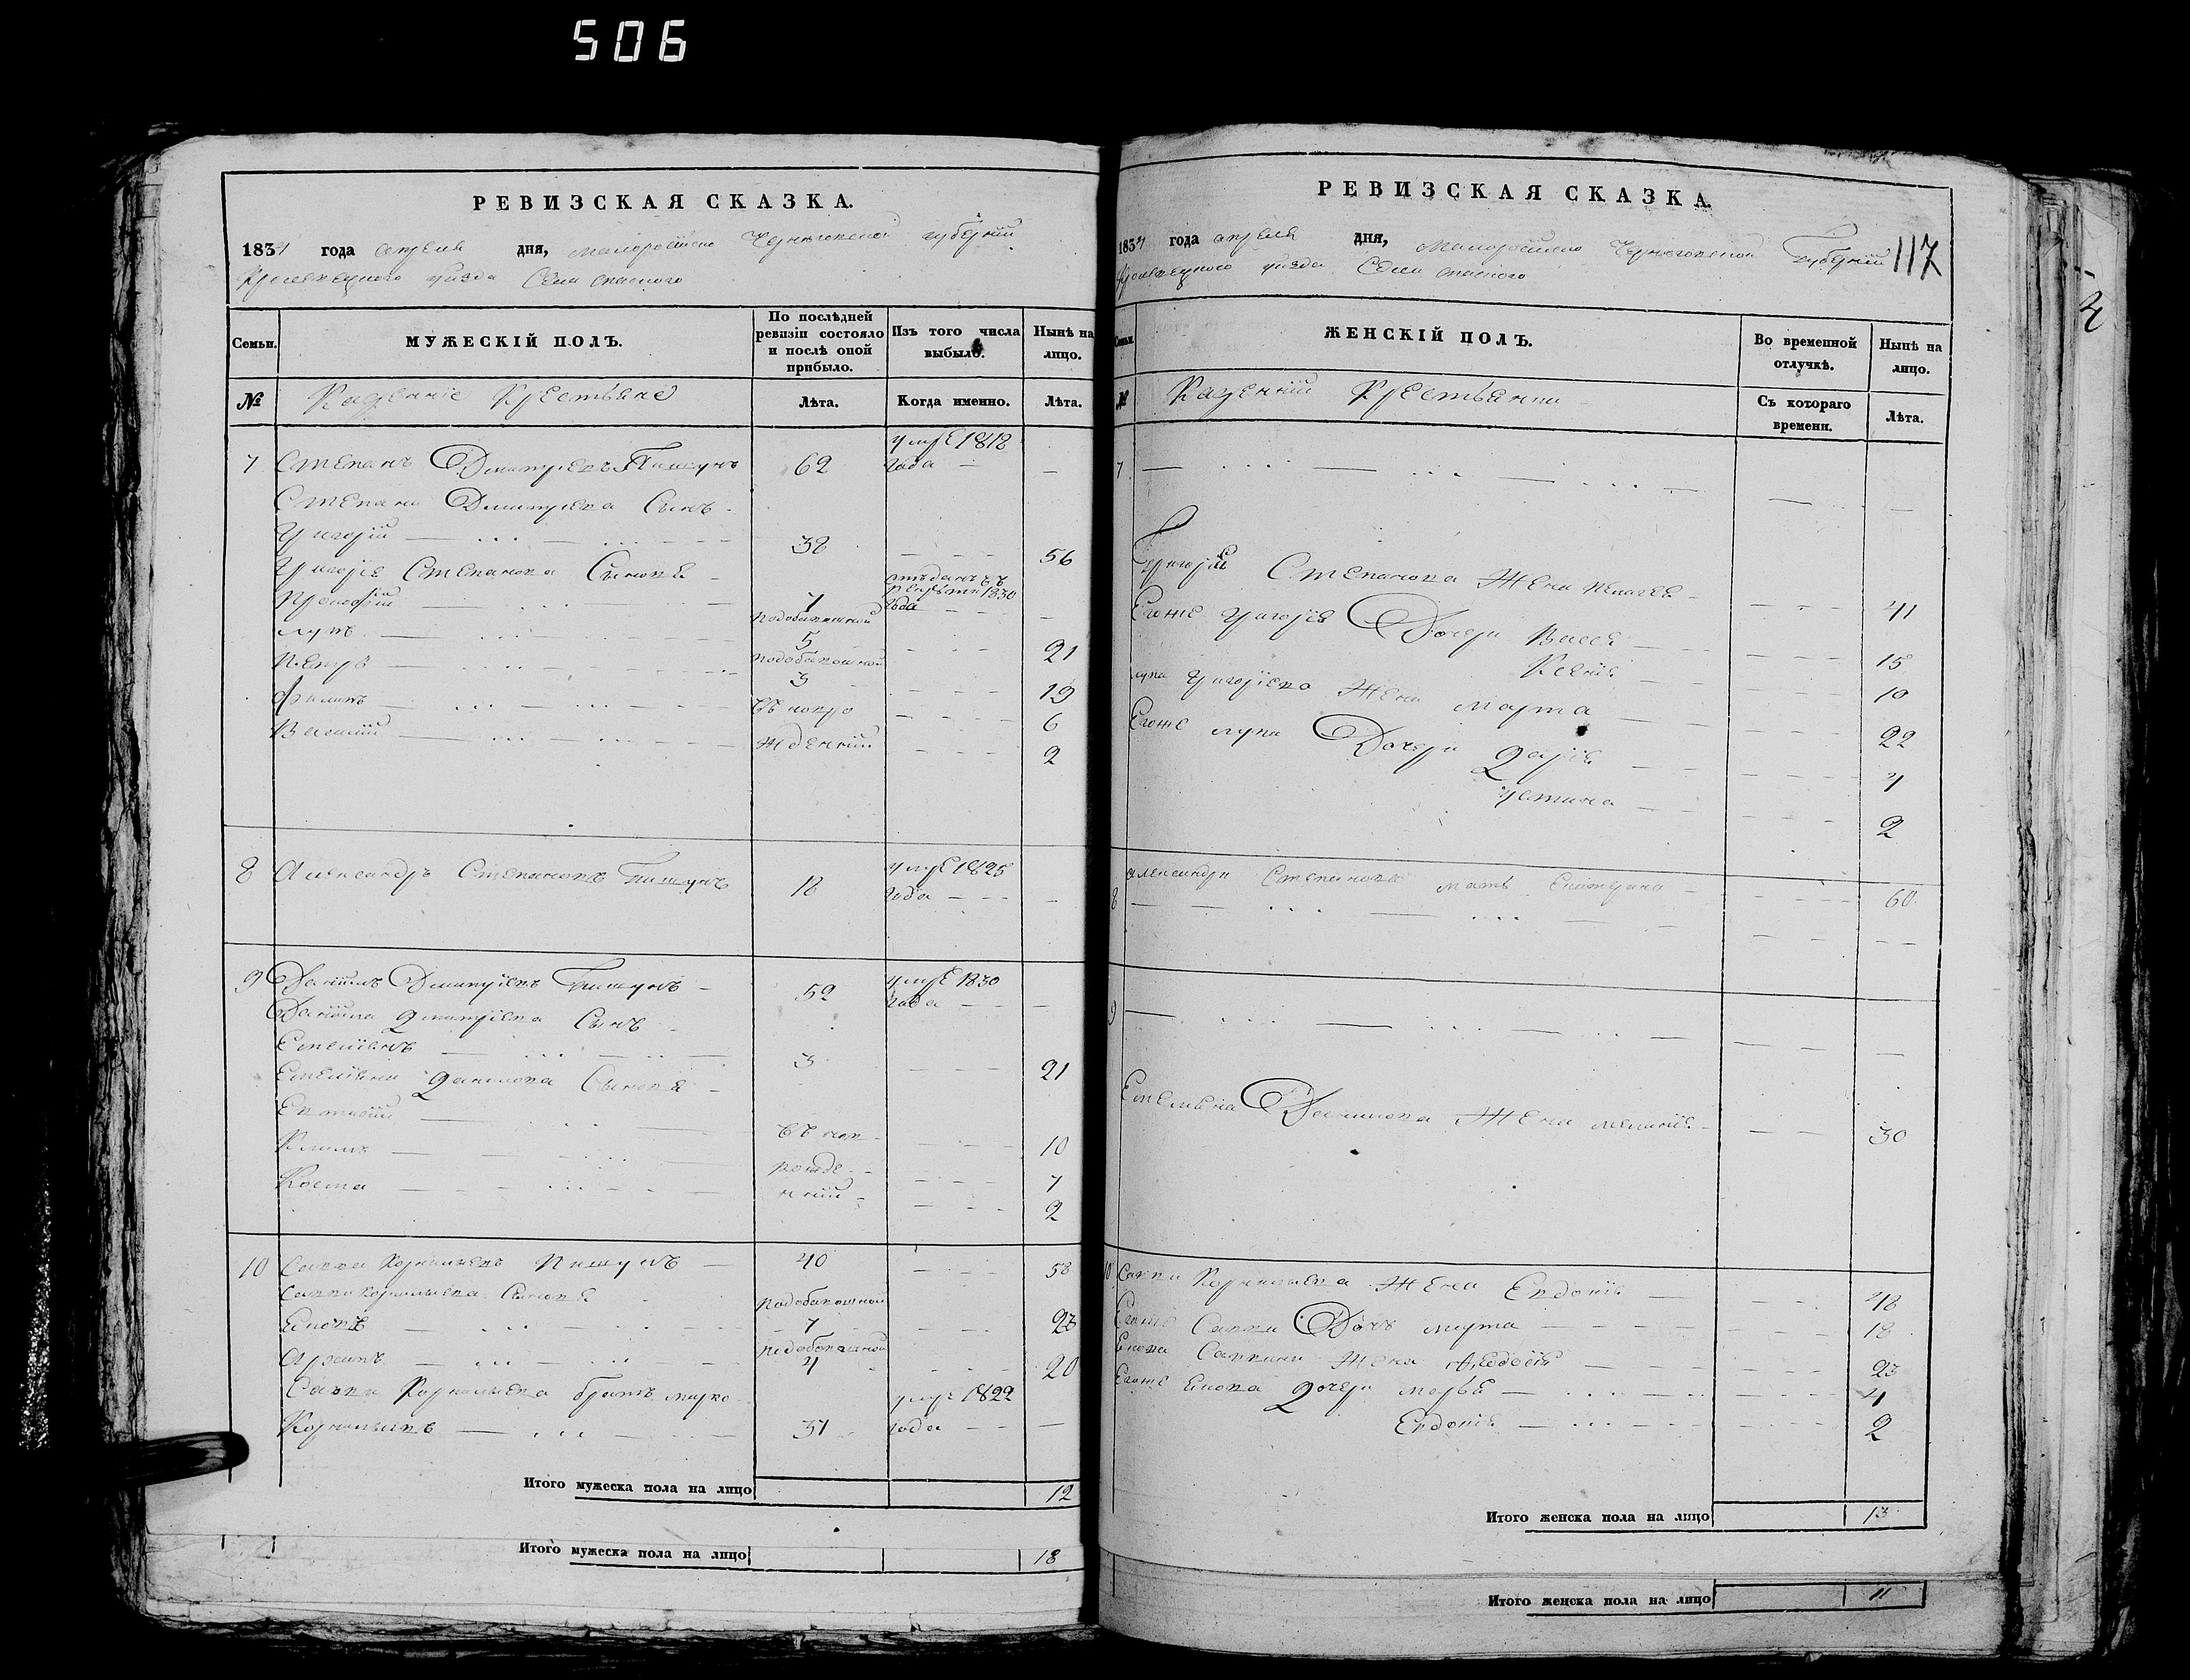 506
РЕВИЗСКАЯ СКАЗКА.
1834 года апреля дня, малороссійско Черниговской губерніи
Кролевецкого уезда Села Спаского
Семьи.
МУЖЕСКІЙ ПОЛЪ.
По послѣдней ревизіи состояло и послѣ оной прибыло.
Изъ того числа выбыло.
Нынѣ на лицо.
№
Казенніе Крестьяне
Лѣта.
Когда именно.
Лѣта.
7 Степанъ Дмитріевъ Пишунъ 62 умре 1818 года
Степана Дмитріева Сынъ
Григорій 38 56
Григорія Степанова Сыновя
Прокофій 7 отъданъ въ рекруты 1830 года
лупъ 5 21
Петръ 3 19
Филипъ въ новро 6
Василій жденній 2
8 Александръ Степановъ Пишунъ 18 умре 1825 года
9 Даніилъ Дмитріевъ Пишунъ 52 умре 1830 года
Даніила Дмитріева Сынъ
Емеліянъ 3 21
Емеліяна Данилова Сыновя
Евтихій въ нов 10
Климъ рожде 7
Косма нній 2
10 Савва Корнильевъ Пишунъ 40 58
Саввы Корнильева Сыновя
Еновъ 7 23
Архипъ 4 20
Саввы Корнильева братъ марко
Корнильевъ 31 умре 1822 года
Итого мужеска пола на лицо 12
Итого мужеска пола на лицо 18
РЕВИЗСКАЯ СКАЗКА.
117
1834 года апреля дня, Малороссійско Черниговской Губерніи
Кролевецкого уезда Села Спаского
Семьи.
ЖЕНСКІЙ ПОЛЪ.
Во временной отлучкѣ.
Нынѣ на лицо.
№
Казенній Крестьянки
Съ котораго времени.
Лѣта.
7
Григорія Степанова Жена Пелагея 41
Егоже Григорія Дочери Васса 15
Ксенія 10
лупа Григоріева Жена Марта 22
Егоже лупа Дочери Дарія 4
Устина 2
8 Александра Степанова мать Екатерина 60
9
Емельяна Данилова Жена меланія 30
10 Саввы Корнильева Жена Евдокія 48
Егоже Саввы Дочь марта 18
Енова Саввина Жена Феодосія 23
Егоже Енова Дочери марья 4
Евдокія 2
Итого женска пола на лицо 13
Итого женска пола на лицо 11